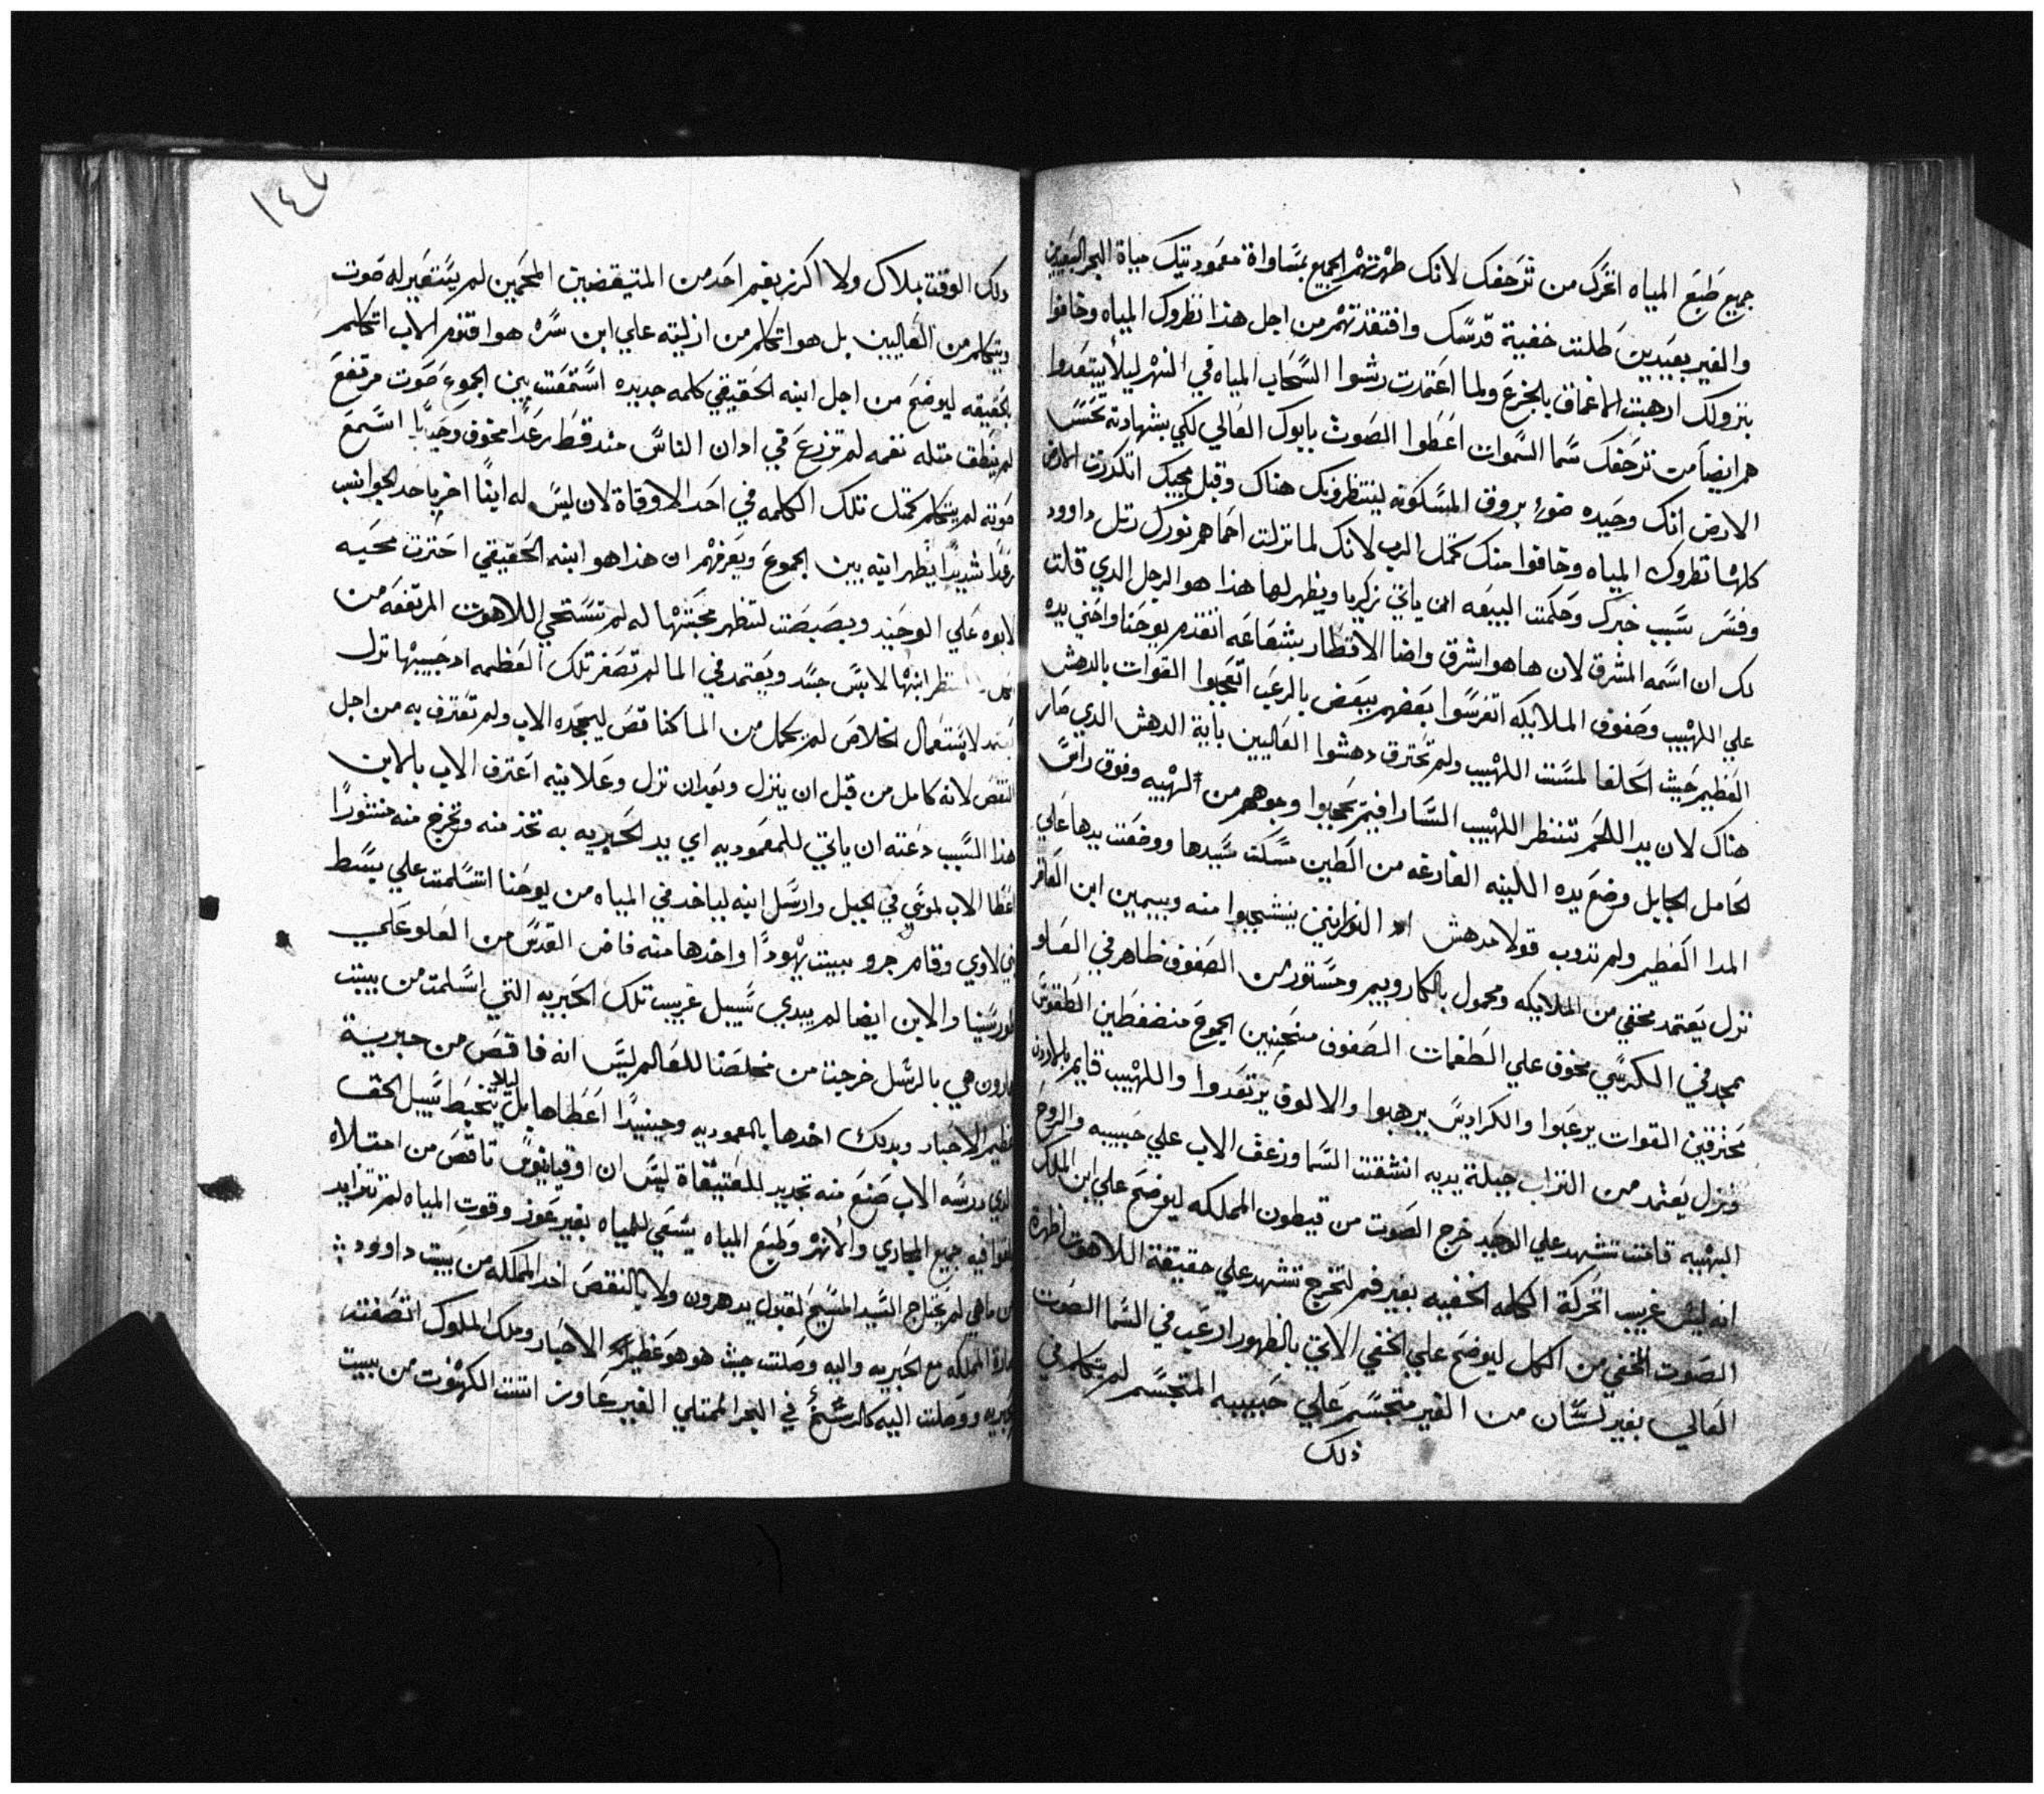 جميع طبع المياه اتحرك من تزحفك لانك طهرتهم الجميع بمساواة معموديتك مياة البحر البعيدين
والغير بعيدين طلت خفية قدسك وافتقدتهم من اجل هذا نظروك المياه وخافوا
بنزولك ارهبت الاعماق بالجزع ولما اعتمدت رشوا السحاب المياه في النهر ليلا يبتعدوا
هم ايضا من تزحفك سما السموات اعطوا الصوت بابوك العالي لكي بشهادته تحسا
الارض انك وحيده ضوء بروق المسكونه لينتظرونك هناك وقبل مجيك اتكدرت الارض
كلها نظروك المياه وخافوا منك كمثل الرب لانك لما نزلت احماهم نورك رتل داوود
وفسر سبب خبرك وحكمت البيعه ابن ياتي زكريا ويظهر لها هذا هو الرجل الدي قلت
لك ان اسمه المشرق لان هاهو اشرق واضا الاقطار بشعاعه اتقدم يوحنا واحني يده
علي اللهيب وصفوف الملايكه اتفرسوا بعضهم ببعض بالرعب اتعجبوا القوات بالدهش
العظيم حيث الحلفا لمست اللهيب ولم تحترق دهشوا العاليين باية الدهش الدي صار
هناك لان يد اللحم تنتظر اللهيب السارافيم يحجبوا وجوههم من لهيبه وفوق راس
لحامل الجبايل وضع يده اللينه الفارغه من الطين مسكت سيدها ووضعت يدها علي
المدا العظيم ولم تدوب قولا مدهش النورانيين ينشحبوا منه وبيمين ابن العاقر
نزل يعتمد مخفي من الملايكه ومحمول بالكاروبيم ومستور من الصفوف ظاهر في العلو
ممجد في الكرسي مخوف علي الطغمات الصفوف منحنيين الجموع منضغطين الطقوس
محترقين القوات يرعبوا والكراديس يرهبوا والالوف يرتعدوا واللهيب قايم بالاردن
ونزل يعتمد من التراب جبلة يديه انشقت السما وزعف الاب علي حبيبه والروح
البهيبه قامت تشهد علي الوحيد خرج الصوت من قيطون المملكه ليوضح علي ابن الملك
انه ليس غريب اتحركة الكلمه الخفيه بغير فم لتخرج تشهد علي حقيقة اللاهوت اظهرة
الصوت المخفي من الكل ليوضح علي الخفي الاتي بالظهور ارعب في السما الصوت
العالي بغير لسان من الغير متجسم علي حبيبه المتجسم لم يتكلم في
ذلك
١٤٧
دلك الوقت بملاك ولا اكرز بفم احد من المتيقضين المحمين لم يستعير له صوت
ويتكلم من العاليين بل هو اتكلم من ازليته علي ابن سره هو اقنوم الاب اتكلم
بالحقيقه ليوضح من اجل ابنه الحقيقي كلمه جديده استمعت بين الجموع صوت مرتفع
لم ينطق مثله نغمه لم تزرع في ادان الناس منه قط رعدا مخوف وحيا استمع
صوته لم يتكلم كمثل تلك الكلمه في احد الاوقاة لان ليس له ابنا اخر باحد الجوانب
رعدا شديدا يظهر ابنه بين الجموع ويعرفهم ان هذا هو ابنه الحقيقي احترت محبه
لابوه علي الوحيد وبصبصت لتظهر محبتها له لم تستحي اللاهوت المرتفعه من
تنظر ابنها لابس جسد ويعتمد في الما لم تصغر تلك العظمه اد حبيبها نزل
يعتمد لاستعمال الخلاص لم يكمل من الما كناقص ليمجده الاب ولم تعترف به من اجل
النقص لانه كامل من قبل ان ينزل وبعد ان نزل وعلانيته اعترف الاب بالابن
هذا السبب دعته ان ياتي للمعموديه اي يد الحبريه به تخد منه وتخرج منه منتورا
اعطا الاب لموسي في الجبل وارسل ابنه لياخد في المياه من يوحنا اتسلمت علي يسط
بني لاوي وقام جرو ببيت يهودا واخدها منه فاض القدس من العلو علي
طور سينا والابن ايضا لم يبدي سبيل غريب تلك الحبريه التي اتسلمت من بيت
هارون هي بالرسل خرجت من مخلصنا للعالم ليس انه ناقص من حبرية
عظيم الاحبار وبدلك اخدها بالمعموديه وحينيدا اعطاها بل ليلا يتخبط سبيل الحق
الدي درسه الاب صنع منه تجديد للعتيقاة ليس ان اوقيانوس ناقص من امتلاه
يلقوا فيه جميع المجاري والانهر وطبع المياه يسعي للمياه بغير عوز وقوت المياه لم تتزايد
من ماهي لم يحتاج السيد المسيح لقبول يد هرون ولا بالنقص اخد المملكه من بيت داوود ؛
المملكه مع الحبريه واليه وصلت حيث هو هو عظيم الاحبار وملك الملوك اتصفت
الحبريه ووصلت اليه كالرشح في البحر الممتلي الغير عاوز اتت الكهنوت من بيت